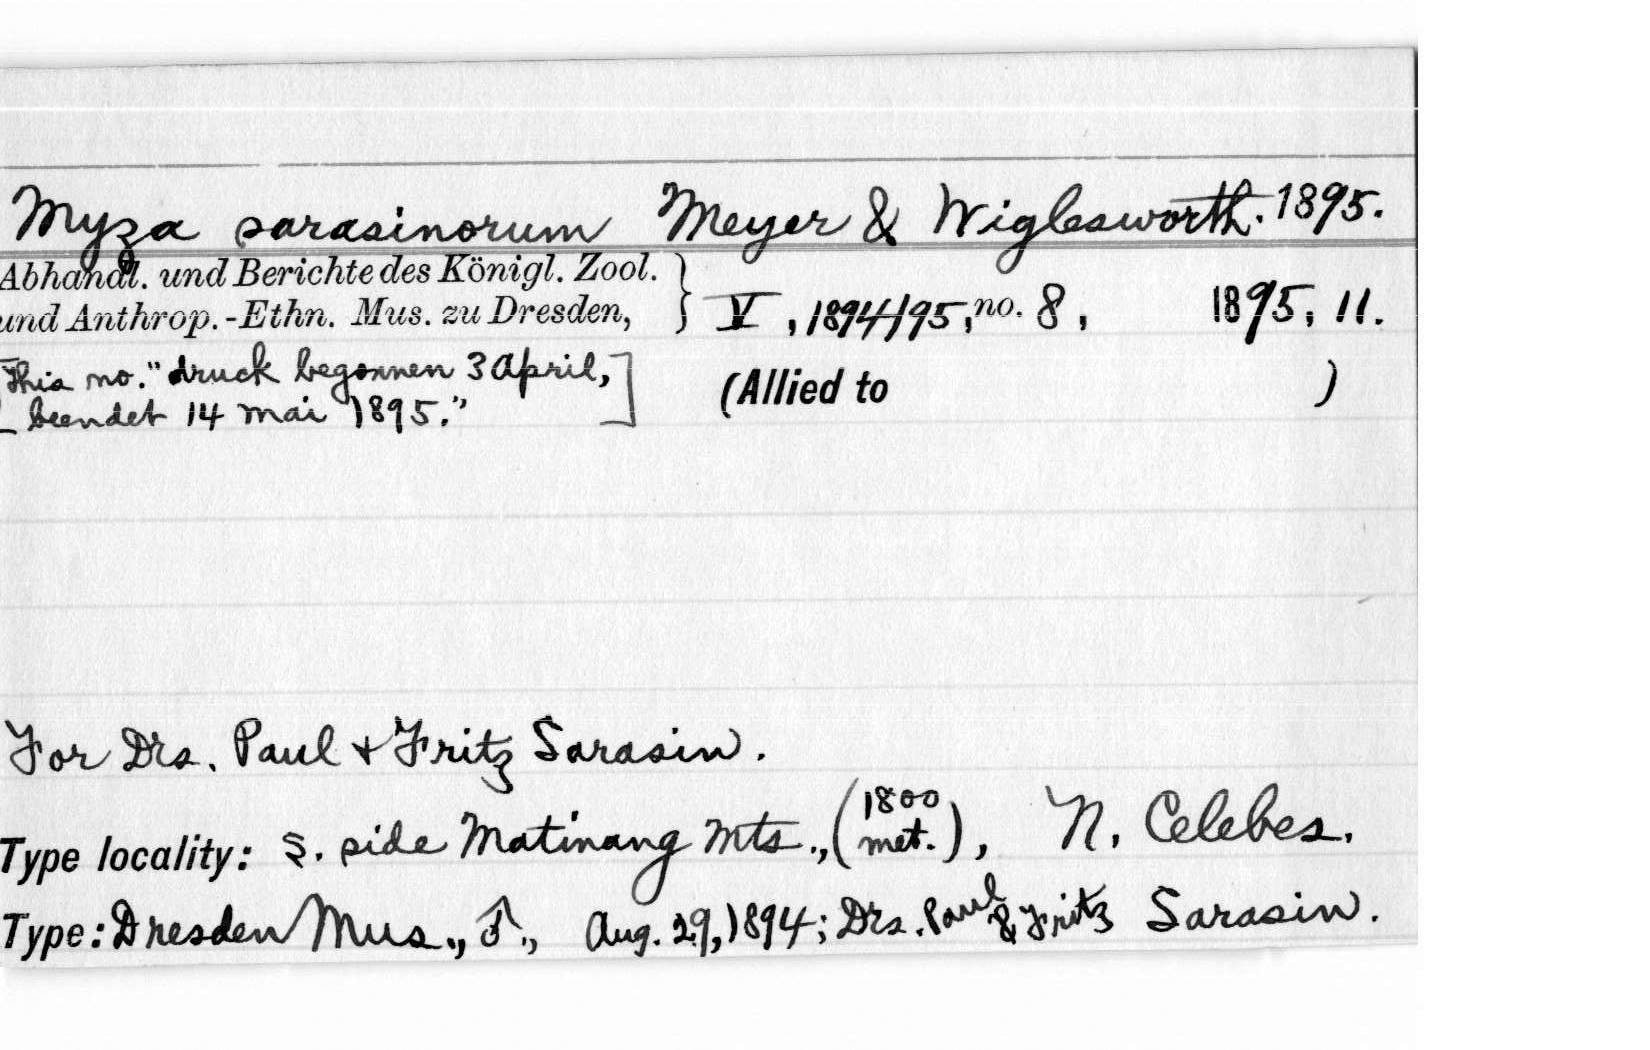 Myza sarasinorum Meyer & Wiglesworth. 1895.
Abhandl. und Berichte des Königl. Zool.
und Anthrop.-Ethn. Mus. zu Dresden, } V, 1894/95, no. 8, 1895, 11.
[This no. "druck begonnen 3 April,
beendet 14 Mai 1895."] (Allied to )
For Drs. Paul & Fritz Sarasin.
Type locality: S. side Matinang Mts., (1800 met.), N. Celebes.
Type: Dresden Mus., ♂, Aug. 29, 1894; Drs. Paul & Fritz Sarasin.